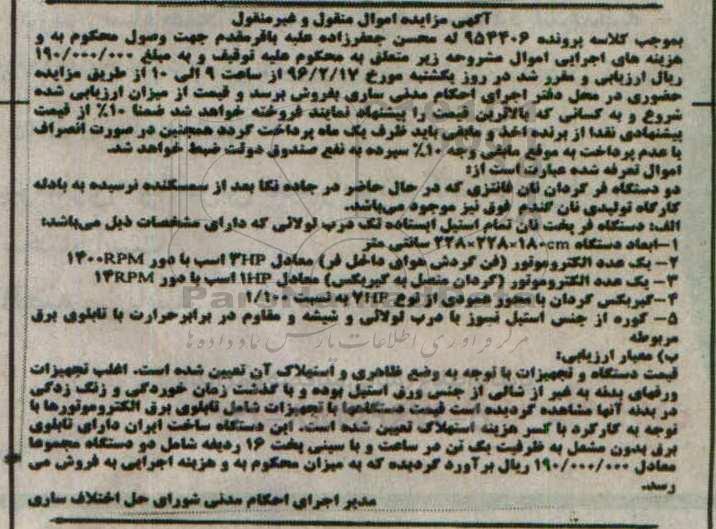 آگهی مزایده اموال منقول و غیرمنقول
بموجب کلاسه پرونده ۹۵۳۴۰۶ له محسن جعفرزاده علیه باقرمقدم جهت وصول محکوم به و
هزینه های اجرایی اموال مشروحه زیر متعلق به محکوم علیه توقیف و به مبلغ ۱۹۰/۰۰۰/۰۰۰
ریال ارزیابی و مقرر شد در روز یکشنبه مورخ ۹۶/۲/۱۷ از ساعت ۹ الی ۱۰ از طریق مزایده
حضوری در محل دفتر اجرای احکام مدنی ساری بفروش برسد و قیمت از میزان ارزیابی شده
شروع و به کسانی که بالاترین قیمت را پیشنهاد نمایند فروخته خواهد شد ضمنا ۱۰٪ از قیمت
پیشنهادی نقدا از برنده اخذ و مابقی باید ظرف یک ماه پرداخت گردد همچنین در صورت انصراف
یا عدم پرداخت به موقع مابقی وجه ۱۰٪ سپرده به نفع صندوق دولت ضبط خواهد شد.
اموال تعرفه شده عبارت است از:
دو دستگاه فر گردان نان فانتزی که در حال حاضر در جاده نکا بعد از سمسکنده نرسیده به بادله
کارگاه تولیدی نان گندم فوق نیز موجود می‌باشد.
الف: دستگاه فر پخت نان تمام استیل ایستاده تک درب لولائی که دارای مشخصات ذیل می‌باشد:
۱-ابعاد دستگاه ۲۲۸×۲۲۸×۱۸۰cm سانتی متر
۲- یک عدد الکتروموتور (فن گردش هوای داخل فر) معادل ۳HP اسب با دور ۱۴۰۰RPM
۳- یک عدد الکتروموتور (گردان متصل به گیربکس) معادل ۱HP اسب با دور ۱۴RPM
۴-گیربکس گردان با محور عمودی از نوع ۷HP به نسبت ۱/۱۰۰
۵- کوره از جنس استیل نسوز با درب لولائی و شیشه و مقاوم در برابرحرارت با تابلوی برق
مربوطه
ب) معیار ارزیابی:
قیمت دستگاه و تجهیزات با توجه به وضع ظاهری و استهلاک آن تعیین شده است. اغلب تجهیزات
ورقهای بدنه به غیر از شالی از جنس ورق استیل بوده و با گذشت زمان خوردگی و زنگ زدگی
در بدنه آنها مشاهده گردیده است قیمت دستگاهها با تجهیزات شامل تابلوی برق الکتروموتورها با
توجه به کارکرد با کسر هزینه استهلاک تعیین شده است. این دستگاه ساخت ایران دارای تابلوی
برق بدون مشعل به ظرفیت یک تن در ساعت و با سینی پخت ۱۶ ردیفه شامل دو دستگاه مجموعا
معادل ۱۹۰/۰۰۰/۰۰۰ ریال برآورد گردیده که به میزان محکوم به و هزینه اجرایی به فروش می
رسد.
مدیر اجرای احکام مدنی شورای حل اختلاف ساری